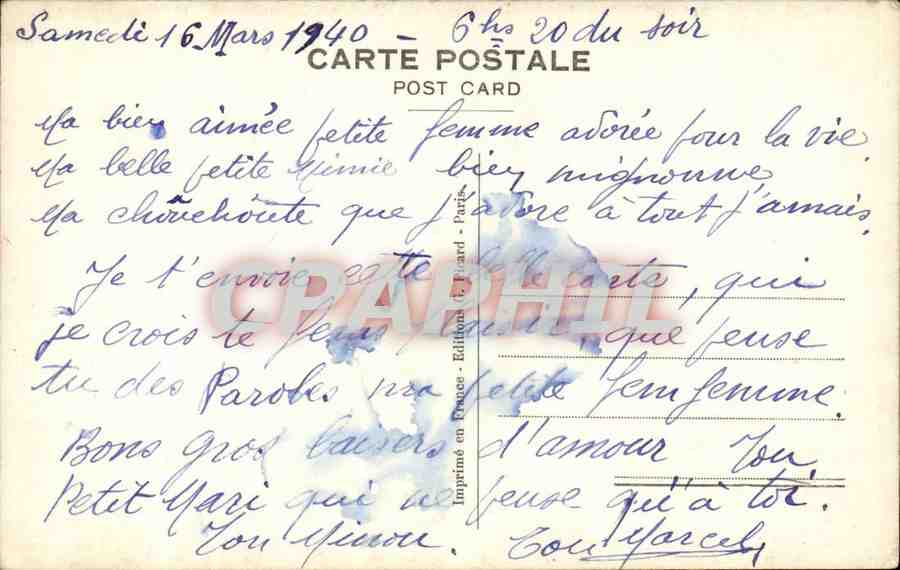 Samedi 16 Mars 1940 - 6 hs 20 du soir
CARTE POSTALE
POST CARD
Ma bien aimée petite femme adorée pour la vie.
Ma belle petite Mimie bien mignonne,
Ma choûchoûte que j'adore à tout j'amais.
Je t'envoie cette belle carte, qui
je crois te feras plaisir, que pense
tu des Paroles ma petite femfemme.
Bons gros baisers d'amour Ton
Petit Mari qui ne pense qu'à toi.
Ton Minou. Ton Marcel
Imprimé en France - Editions G. Picard - Paris.
CPAPHIL